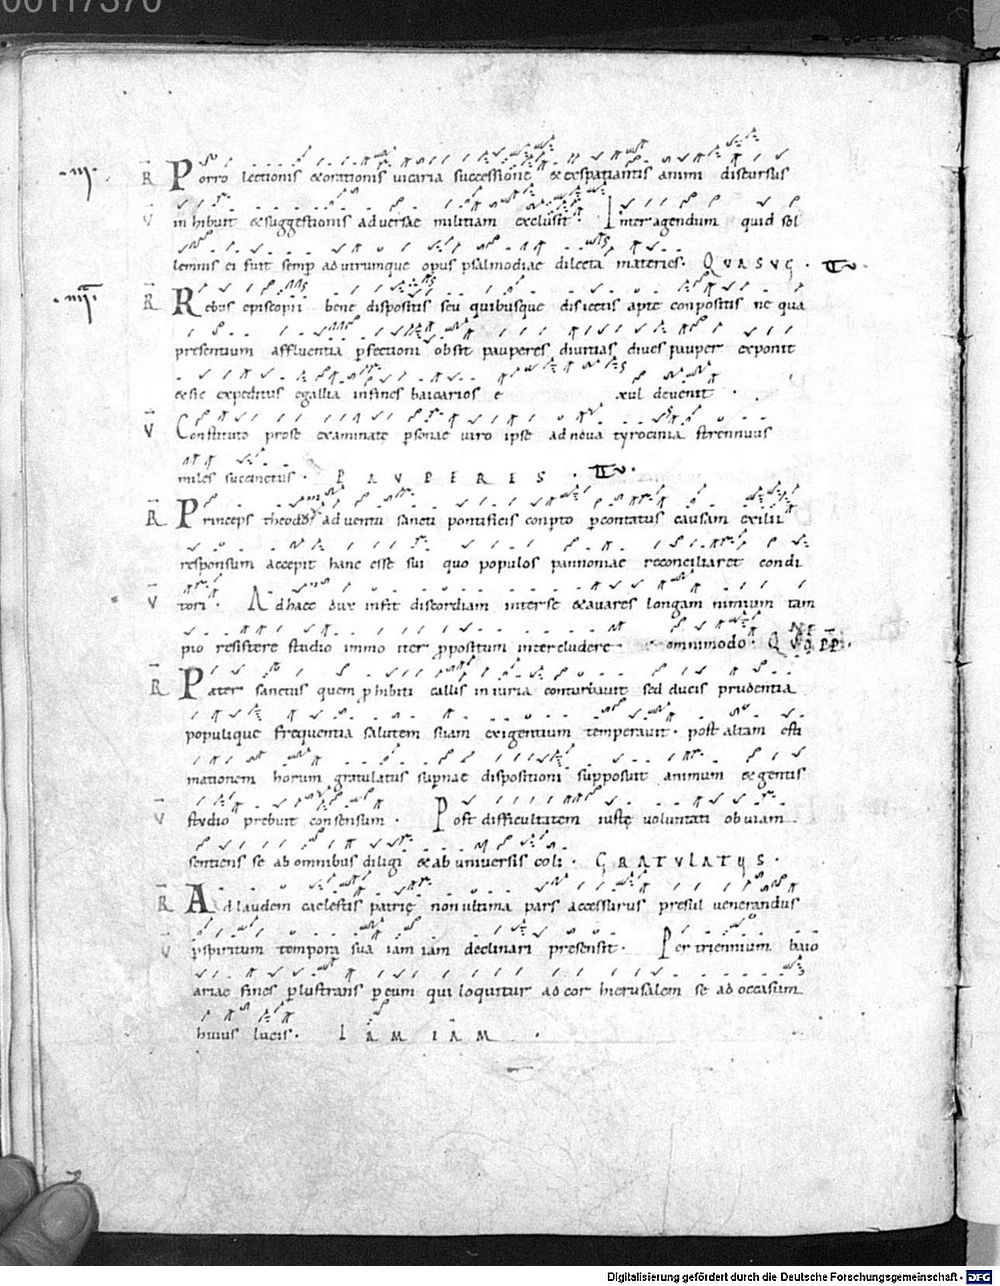 00117370
.III. R Porro lectionis & orationis uicaria successione & exspatiantis animi discursus
V inhibuit & suggestionis aduersae militiam exclusit. Inter agendum quid sol
lemnis ei fuit semp ad utrumque opus psalmodiae dilecta materies. QVASVC.
.IIII. R Rebus episcopii bene dispositis seu quibusque disiectis apte conpositis ne qua
presentium affluentia psectioni obsit pauperes diuitias diues pauper exponit
& sic expeditus egallia infines baioarios e xul deuenit.
V Constituto prose examinatę psonae uiro ipse ad noua tyrocinia strennuus
miles succinctus. PAVPERES.
R Princeps theodo aduentu sancti pontificis conpto pcontatus causam exilii
responsum accepit hanc esse sui quo populos pannoniae reconciliaret condi
V tori. Ad haec dux infit discordiam interse & auares longam nimium tam
pio resistere studio immo iter ppositum intercludere omnimodo.
R Pater sanctus quem phibiti callis iniuria conturbauit sed ducis prudentia
populique frequentia salutem suam exigentium temperauit. post altam esti
mationem horum gratulatus supnae dispositioni supposuit animum & gentis
V studio prebuit consensum. Post difficultatem iustę uoluntati obuiam
sentiens se ab omnibus diligi & ab uniuersis coli. GRATVLATUS.
R Ad laudem caelestis patrię non ultima pars accessurus presul uenerandus
V pspiritum tempora sua iam iam declinari presensit. Per triennium baio
ariae fines plustrans peum qui loquitur ad cor hierusalem se ad occasum
huius lucis. IAM IAM.
Digitalisierung gefördert durch die Deutsche Forschungsgemeinschaft - DFG